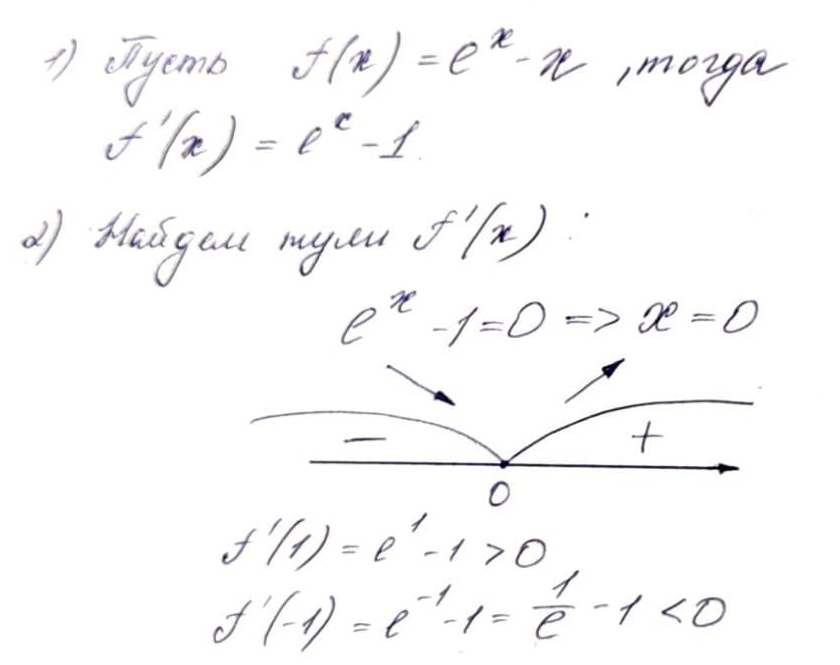 1) Пусть f(x) = e^x - x , тогда
f'(x) = e^x - 1.
2) Найдем нули f'(x) :
e^x - 1 = 0 => x = 0
− +
0
f'(1) = e^1 - 1 > 0
f'(-1) = e^-1 - 1 = 1/e - 1 < 0